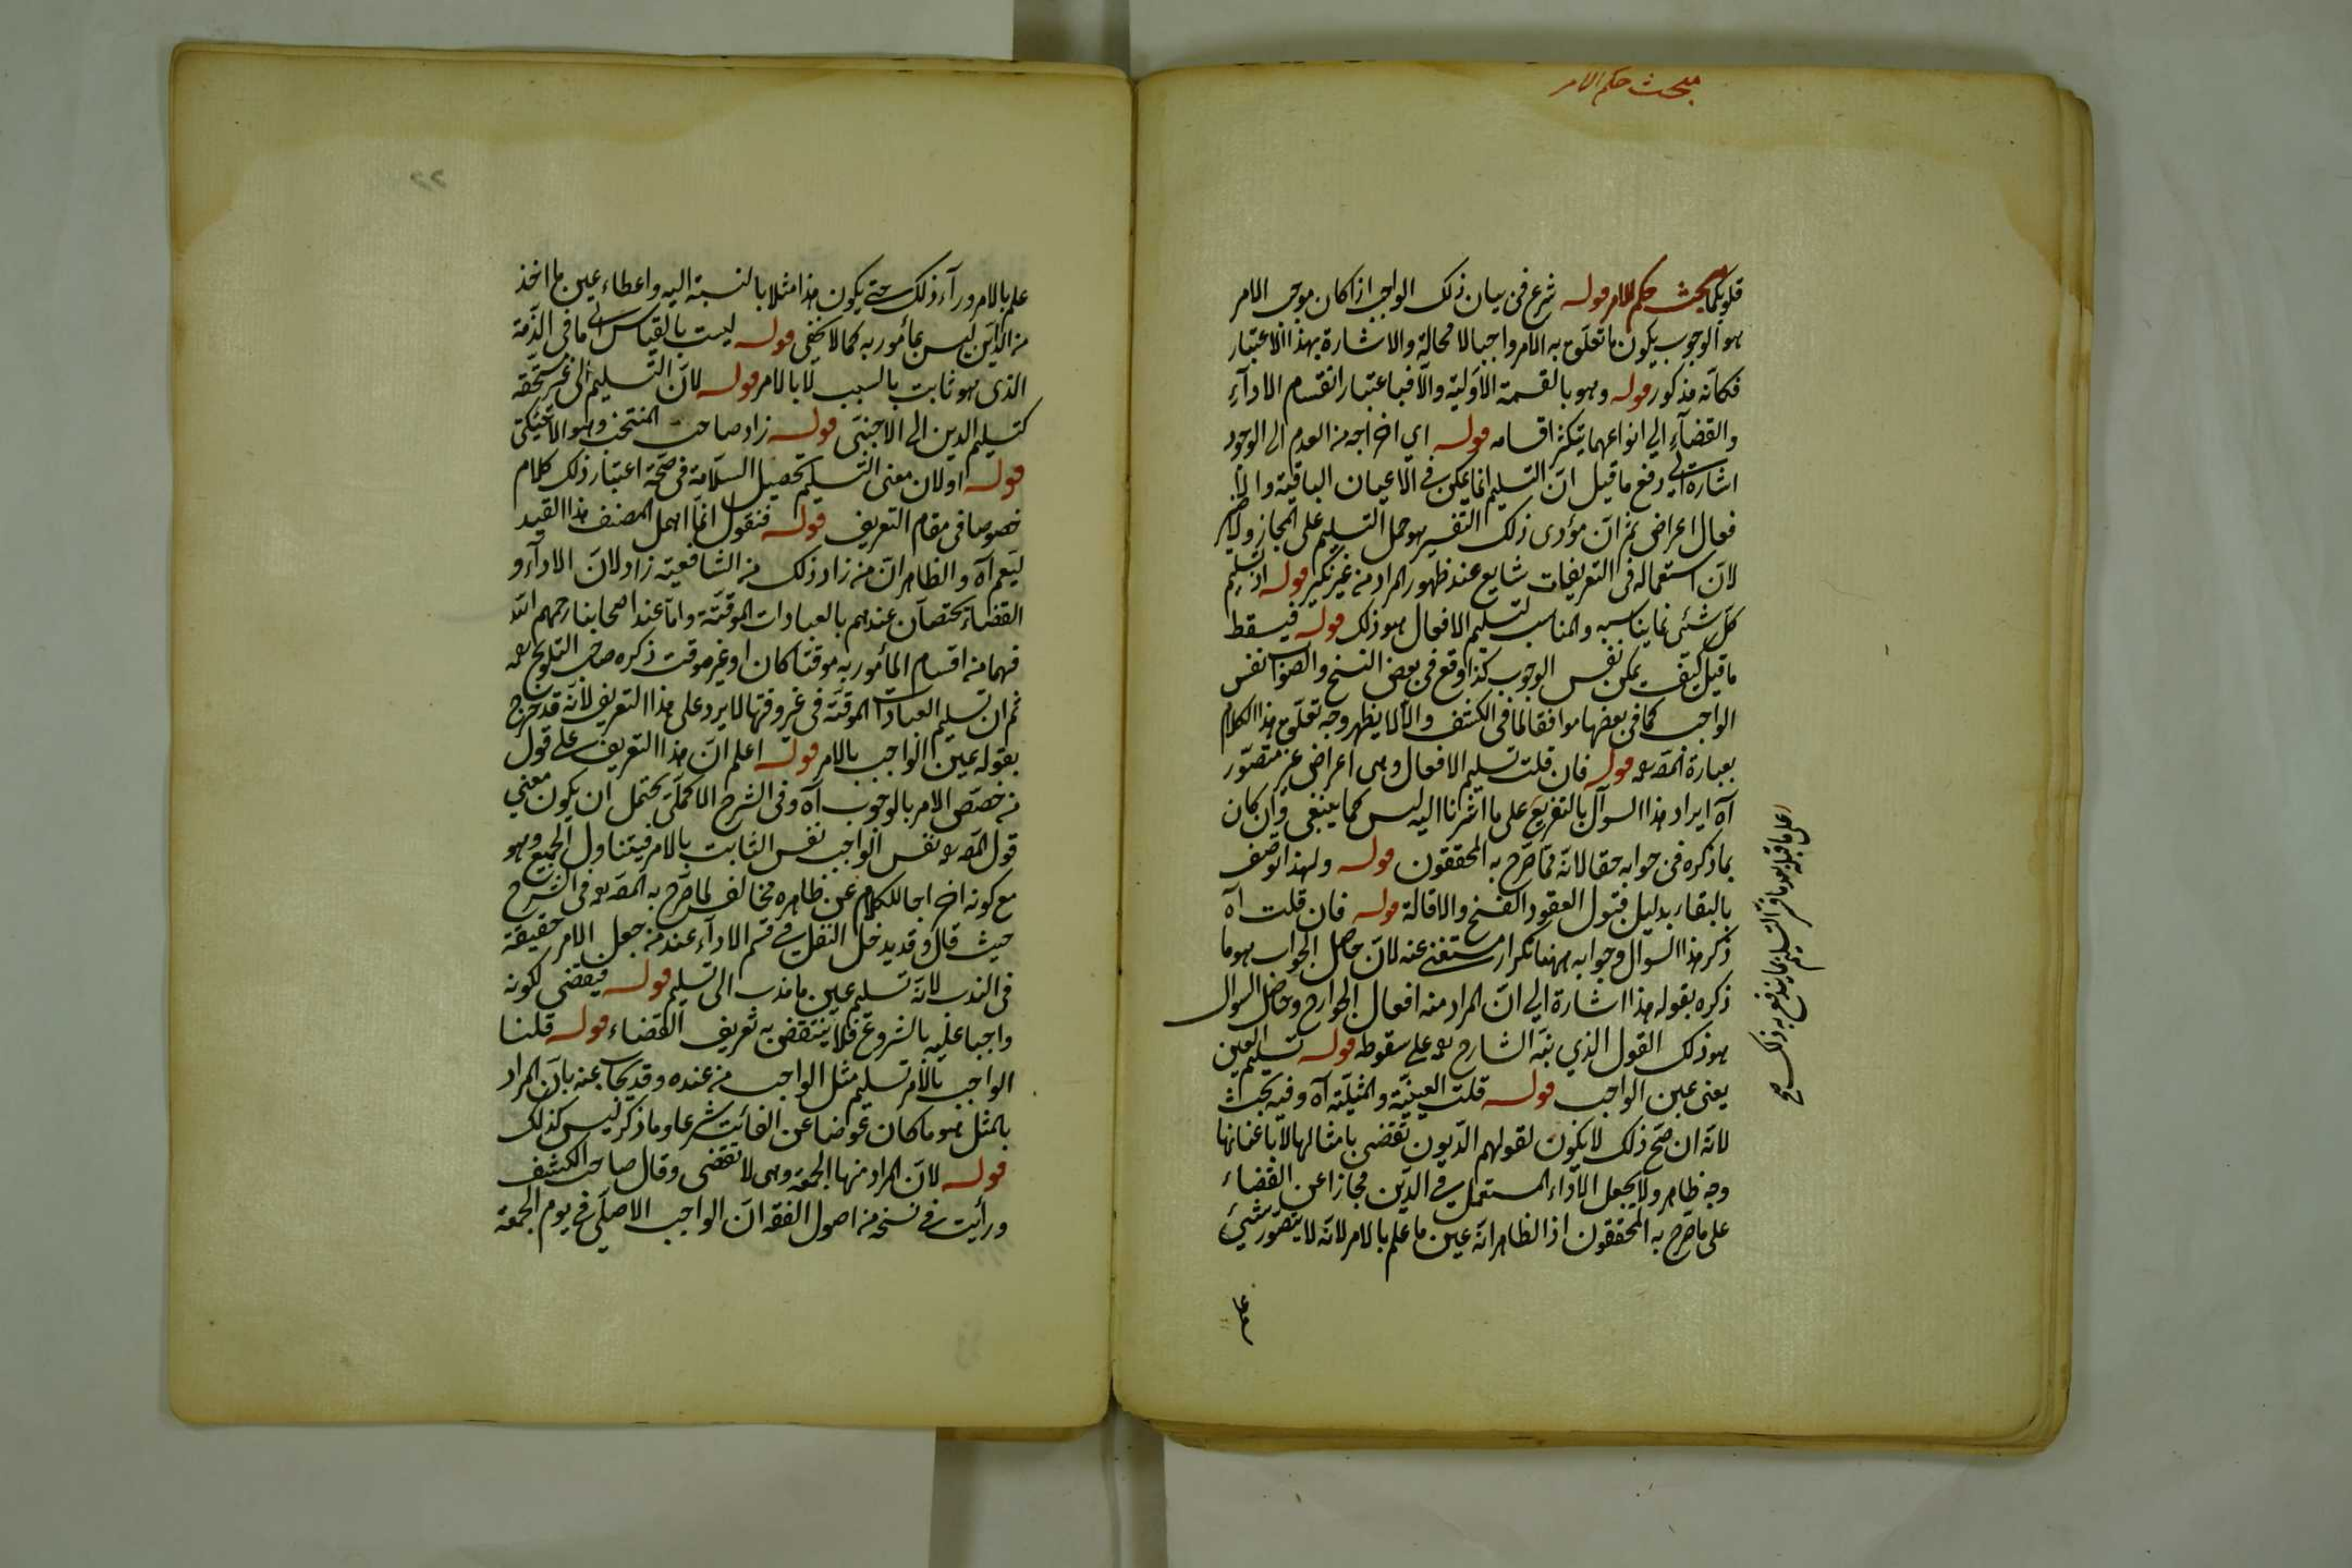 مبحث حكم الامر
قلوبكما مبحث حكم الامر قوله شرع في بيان ذلك الواجب اذا كان موجب الامر
هو الوجوب يكون ما تعلق به الامر واجبا لا محالة والاشارة بهذا الاعتبار
فكأنه مذكور قوله وهو بالقسمة الاولية والا فباعتبار انقسام الادآء
والقضآء الي انواعهما يتكثر اقسامه قوله اي اخراجه من العدم الى الوجود
اشارة الى دفع ما قيل ان التسليم انما يمكن في الاعيان الباقية والا
فعال اعراض ثم ان مؤدى ذلك التفسير هو حمل التسليم على المجاز ولا ضير
لان استعماله في التعريفات شايع عند ظهور المراد من غير نكير قوله اذ تسليم
كل شئ بما يناسبه والمناسب لتسليم الافعال هو ذلك قوله فيسقط
ما قيل كيف يمكن نفس الوجوب كذا وقع في بعض النسخ والصواب نفس
الواجب كما في بعضها موافقا لما في الكشف والا لا يظهر وجه تعلق هذا الكلام
بعبارة المص رحمه قوله فان قلت تسليم الافعال وهي اعراض غير متصور
آه ايراد هذا السوآل بالتفريع على ما اشرنا اليه ليس كما ينبغي وان كان
بما ذكره في جوابه حقا لانه مما صرح به المحققون قوله ولهذا توصف
بالبقاء بدليل قبول العقود الفسخ والاقالة قوله فان قلت آه
ذكر هذا السوال وجوابه ههنا تكرار مستغنى عنه لان حاصل الجواب هو ما
ذكره بقوله هذا اشارة الي ان المراد منه افعال الجوارح وحاصل السوال
هو ذلك القول الذي نبه الشارح رحمه على سقوطه قوله تسليم العين
يعنى عين الواجب قوله قلت العينية والمثلية آه وفيه بحث
لانه ان صح ذلك لا يكون لقولهم الديون تقضى بامثالها لا باعيانها
وجه ظاهر ولا يجعل الاداء المستعمل في الدين مجازا عن القضاء
على ما صرح به المحققون اذ الظاهر انه عين ما علم بالامر لانه لا يتصور شيئ
على ما قبله هو ما فسر التسليم بما يندفع به ذلك صح
٢٢
علم بالامر ورآء ذلك حتى يكون هذا مثلا بالنسبة اليه واعطاء عين ما اخذ
من الدين ليس بمأمور به كما لا يخفى قوله ليست بالقياس الى ما في الذمة
الذي هو ثابت بالسبب لا بالامر قوله لان التسليم الى غير مستحقه
كتسليم الدين الى الاجنبي قوله زاد صاحب المنتخب وهو الاخسيكتي
قوله او لان معنى التسليم تحصيل السلامة في صحة اعتبار ذلك كلام
خصوصا في مقام التعريف قوله فنقول انما اهمل المصنف هذا القيد
ليعم آه والظاهر ان من زاد ذلك من الشافعية زاد لان الادآء و
القضاء مختصان عندهم بالعبادات الموقتة واما عند اصحابنا رحمهم الله
فهما من اقسام المأمور به موقتا كان او غير موقت ذكره صاحب التلويح رحمه
ثم ان تسليم العبادات الموقتة في غير وقتها لا يرد على هذا التعريف لانه قد خرج
بقوله عين الواجب بالامر قوله اعلم ان هذا التعريف على قول
من خصص الامر بالوجوب آه وفي الشرح الاكملي يحتمل ان يكون معني
قول المص رحمه نفس الواجب نفس الثابت بالامر فيتناول الجميع وهو
مع كونه اخراجا للكلام عن ظاهره مخالف لما صرح به المص رحمه في الشرح
حيث قال وقد يدخل النفل في قسم الادآء عند من جعل الامر حقيقة
في الندب لانه تسليم عين ما ندب الى تسليمه قوله فيقضى لكونه
واجبا عليه بالشروع فلا ينتقض به تعريف القضاء قوله قلنا
الواجب بالامر تسليم مثل الواجب من عنده وقد يجاب عنه بان المراد
بالمثل هو ما كان عوضا عن الفائت شرعا وما ذكر ليس كذلك
قوله لان المراد منها الجمعة وهي لا تقضى وقال صاحب الكشف
ورأيت في نسخة من اصول الفقه ان الواجب الاصلي في يوم الجمعة